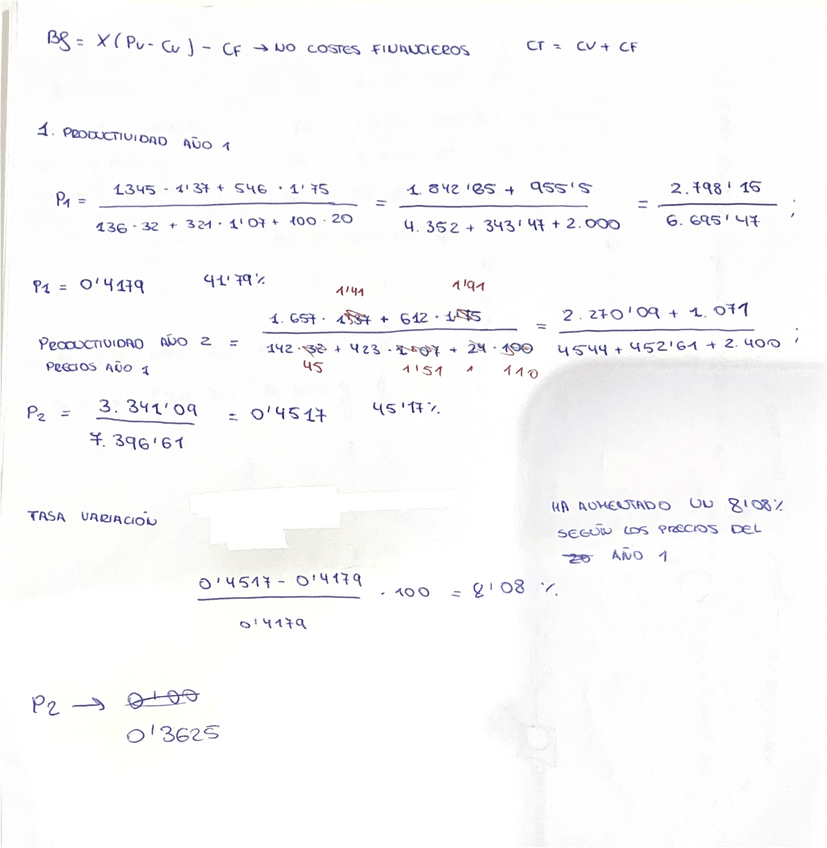 Bº = X(Pu - Cu) - CF → NO COSTES FINANCIEROS CT = CV + CF
1. PRODUCTIVIDAD AÑO 1
P1 = 1345 · 1'37 + 546 · 1'75 / 136 · 32 + 321 · 1'07 + 100 · 20 = 1.842'65 + 955'5 / 4.352 + 343'47 + 2.000 = 2.798'15 / 6.695'47 ;
P1 = 0'4179 41'79%
1'41 1'91
PRODUCTIVIDAD AÑO 2 = 1.657 · 1'37 + 612 · 1'75 / 142 · 32 + 423 · 1'07 + 24 · 100 = 2.270'09 + 1.071 / 4544 + 452'61 + 2.400 ;
PRECIOS AÑO 1 45 1'51 110
P2 = 3.341'09 / 7.396'61 = 0'4517 45'17%
TASA VARIACIÓN
HA AUMENTADO UN 8'08%
SEGÚN LOS PRECIOS DEL
AÑO 1
0'4517 - 0'4179 / 0'4179 · 100 = 8'08 %
P2 → 0'00
0'3625